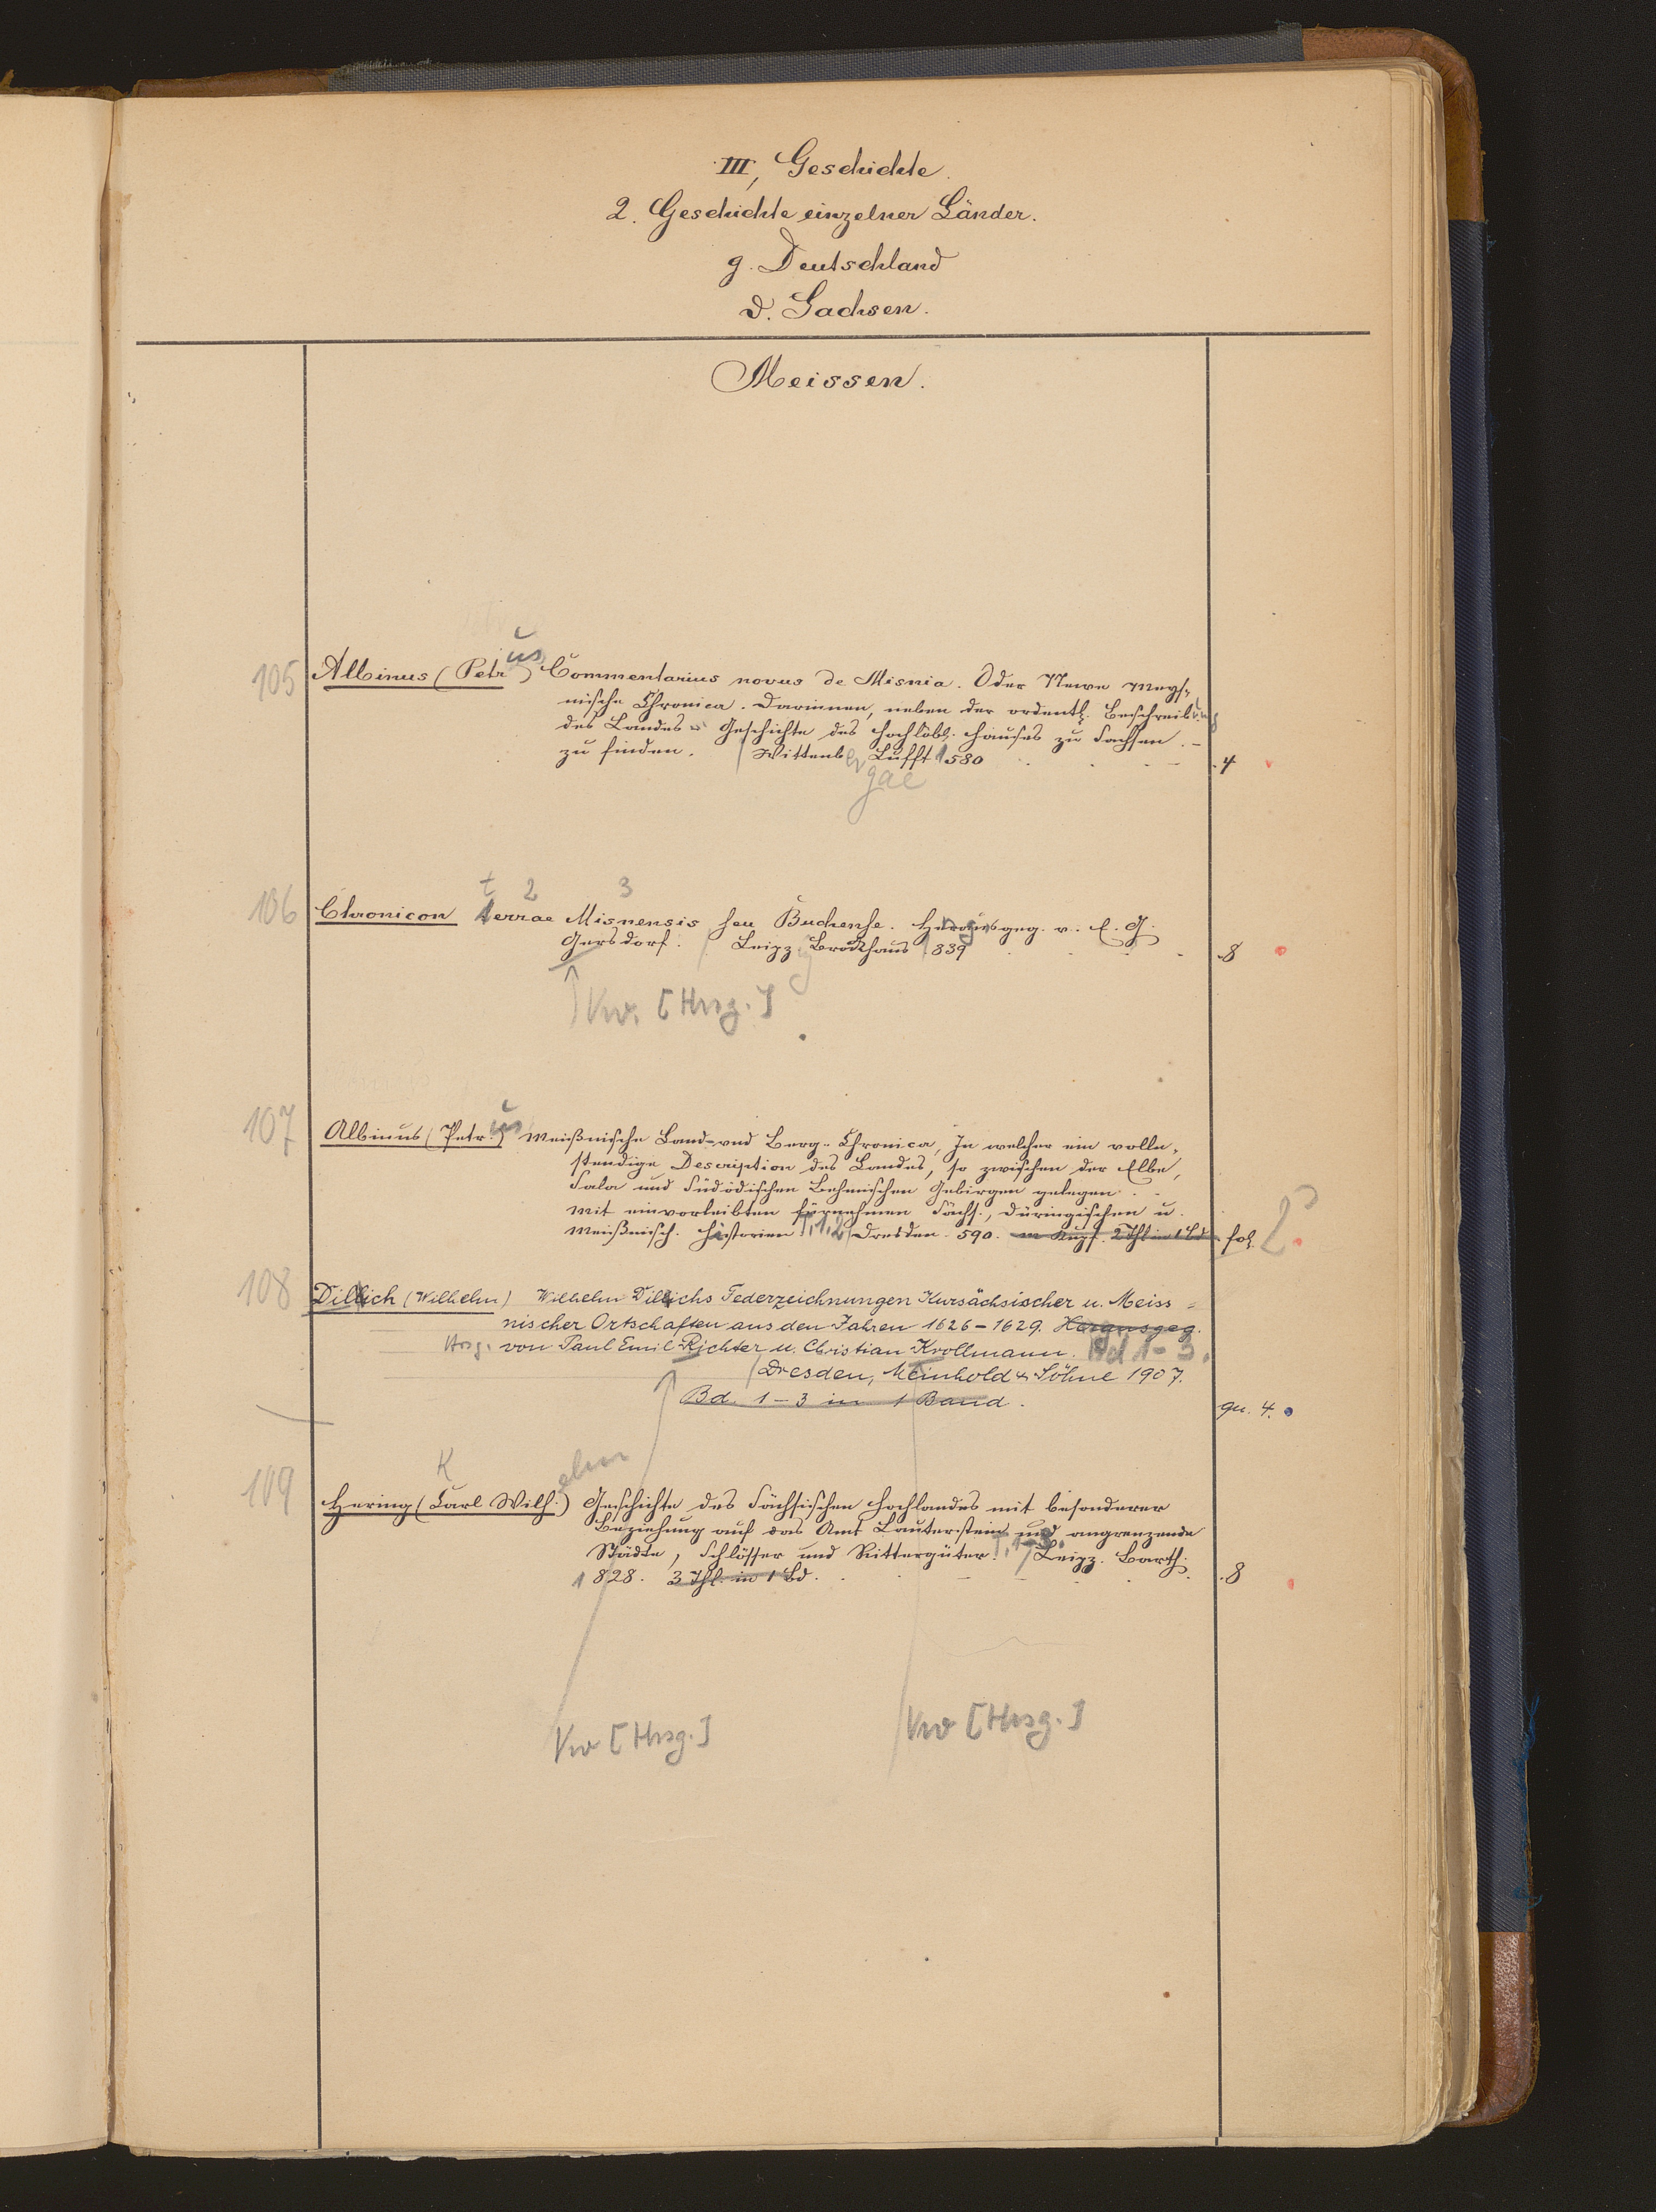 III, Geschichte.
2. Geschichte einzelner Länder.
g. Deutschland
d. Sachsen.
Meissen.
105 Albinus (Petrus) Commentarius novus de Misnia. Oder Newe Meys-
nische Chronica. Darinnen, neben der ordentl. Beschreibung
des Landes Geschichte des Hochlöbl. Hauses zu Sachsen. –
zu finden. Wittenbergae Lufft 1580 . 4
106 Chronicon terrae Misnensis seu Buchense. Herausgeg. v. E. G.
Gersdorf. Leipzig Brockhaus 1839 . 8
Vw. [Hrsg.]
107 Albinus (Petrus) Meißnische Land- und Berg-Chronica, In welcher ein volln-
stendige Description des Landes, so zwischen der Elbe,
Sala und Südödischen Behmischen Gebirgen gelegen . .
Mit einvorleibten fürnehmen Sächs., Düringischen u.
Meißnisch. Historien T. 1. 2 Dresden. 590. m Kupf. 2 Thl in 1 Bd fol. 2°
108 Dillich (Wilhelm) Wilhelm Dilichs Federzeichnungen Kursächsischer u. Meiss=
nischer Ortschaften aus den Jahren 1626–1629. Herausgeg.
Hrsg. von Paul Emil Richter u. Christian Krollmann. Bd 1–3.
Dresden, Meinhold & Söhne 1907.
Bd. 1–3 in 1 Band. qu. 4.
109 Hering (Karl Wilhelm) Geschichte des Sächsischen Hochlandes mit besonderer
Beziehung auf das Amt Lauterstein und angrenzende
Städte, Schlösser und Rittergüter. T. 1–3. Leipz. Barth.
1828. 3 Thl. in 1 Bd. . 8
Vw [Hrsg.] Vw [Hrsg.]